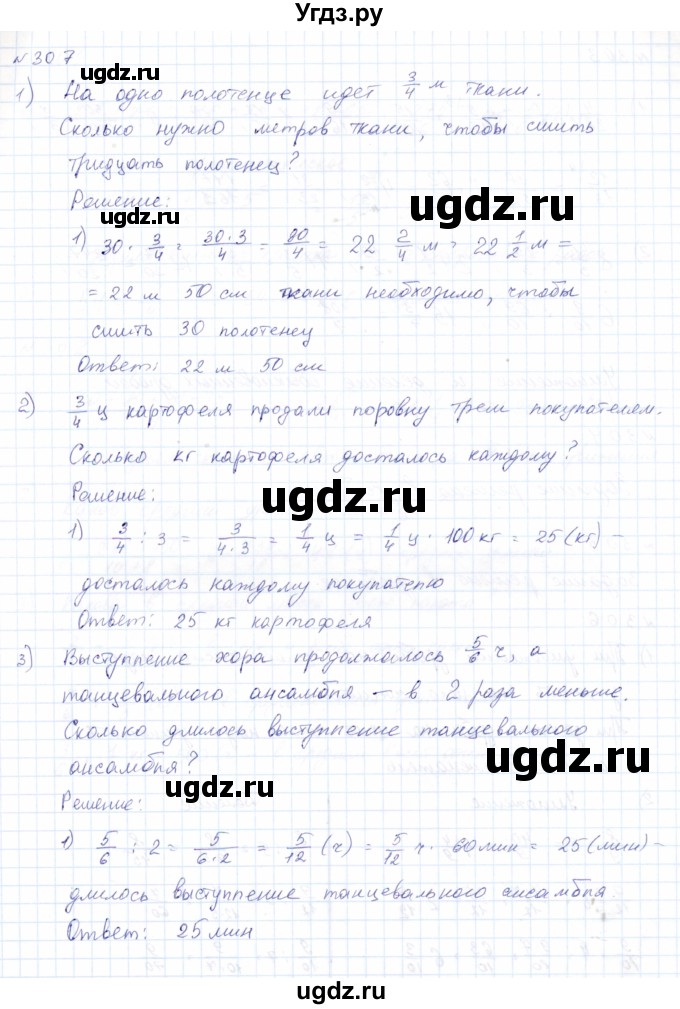 Угдз.ру
№307
ugdz.ru
1) На одно полотенце идет 3/4 м ткани.
Сколько нужно метров ткани, чтобы сшить
тридцать полотенец?
ugdz.ru
Решение:
ugdz.ru
1) 30 · 3/4 = 30·3/4 = 90/4 = 22 2/4 м = 22 1/2 м =
= 22 м 50 см ткани необходимо, чтобы
сшить 30 полотенец
Ответ: 22 м 50 см
2) 3/4 ц картофеля продали поровну трем покупателем.
Сколько кг картофеля досталось каждому?
ugdz.ru
Решение:
1) 3/4 : 3 = 3/4·3 = 1/4 ц = 1/4 ц · 100 кг = 25 (кг) –
досталось каждому покупателю
ugdz.ru
Ответ: 25 кг картофеля
3) Выступление хора продолжалось 5/6 ч, а
танцевального ансамбля – в 2 раза меньше.
Сколько длилось выступление танцевального
ugdz.ru
ансамбля?
ugdz.ru
Решение:
1) 5/6 : 2 = 5/6·2 = 5/12 (ч) = 5/12 ч · 60 мин = 25 (мин) –
длилось выступление танцевального ансамбля.
Ответ: 25 мин
ugdz.ru
ugdz.ru